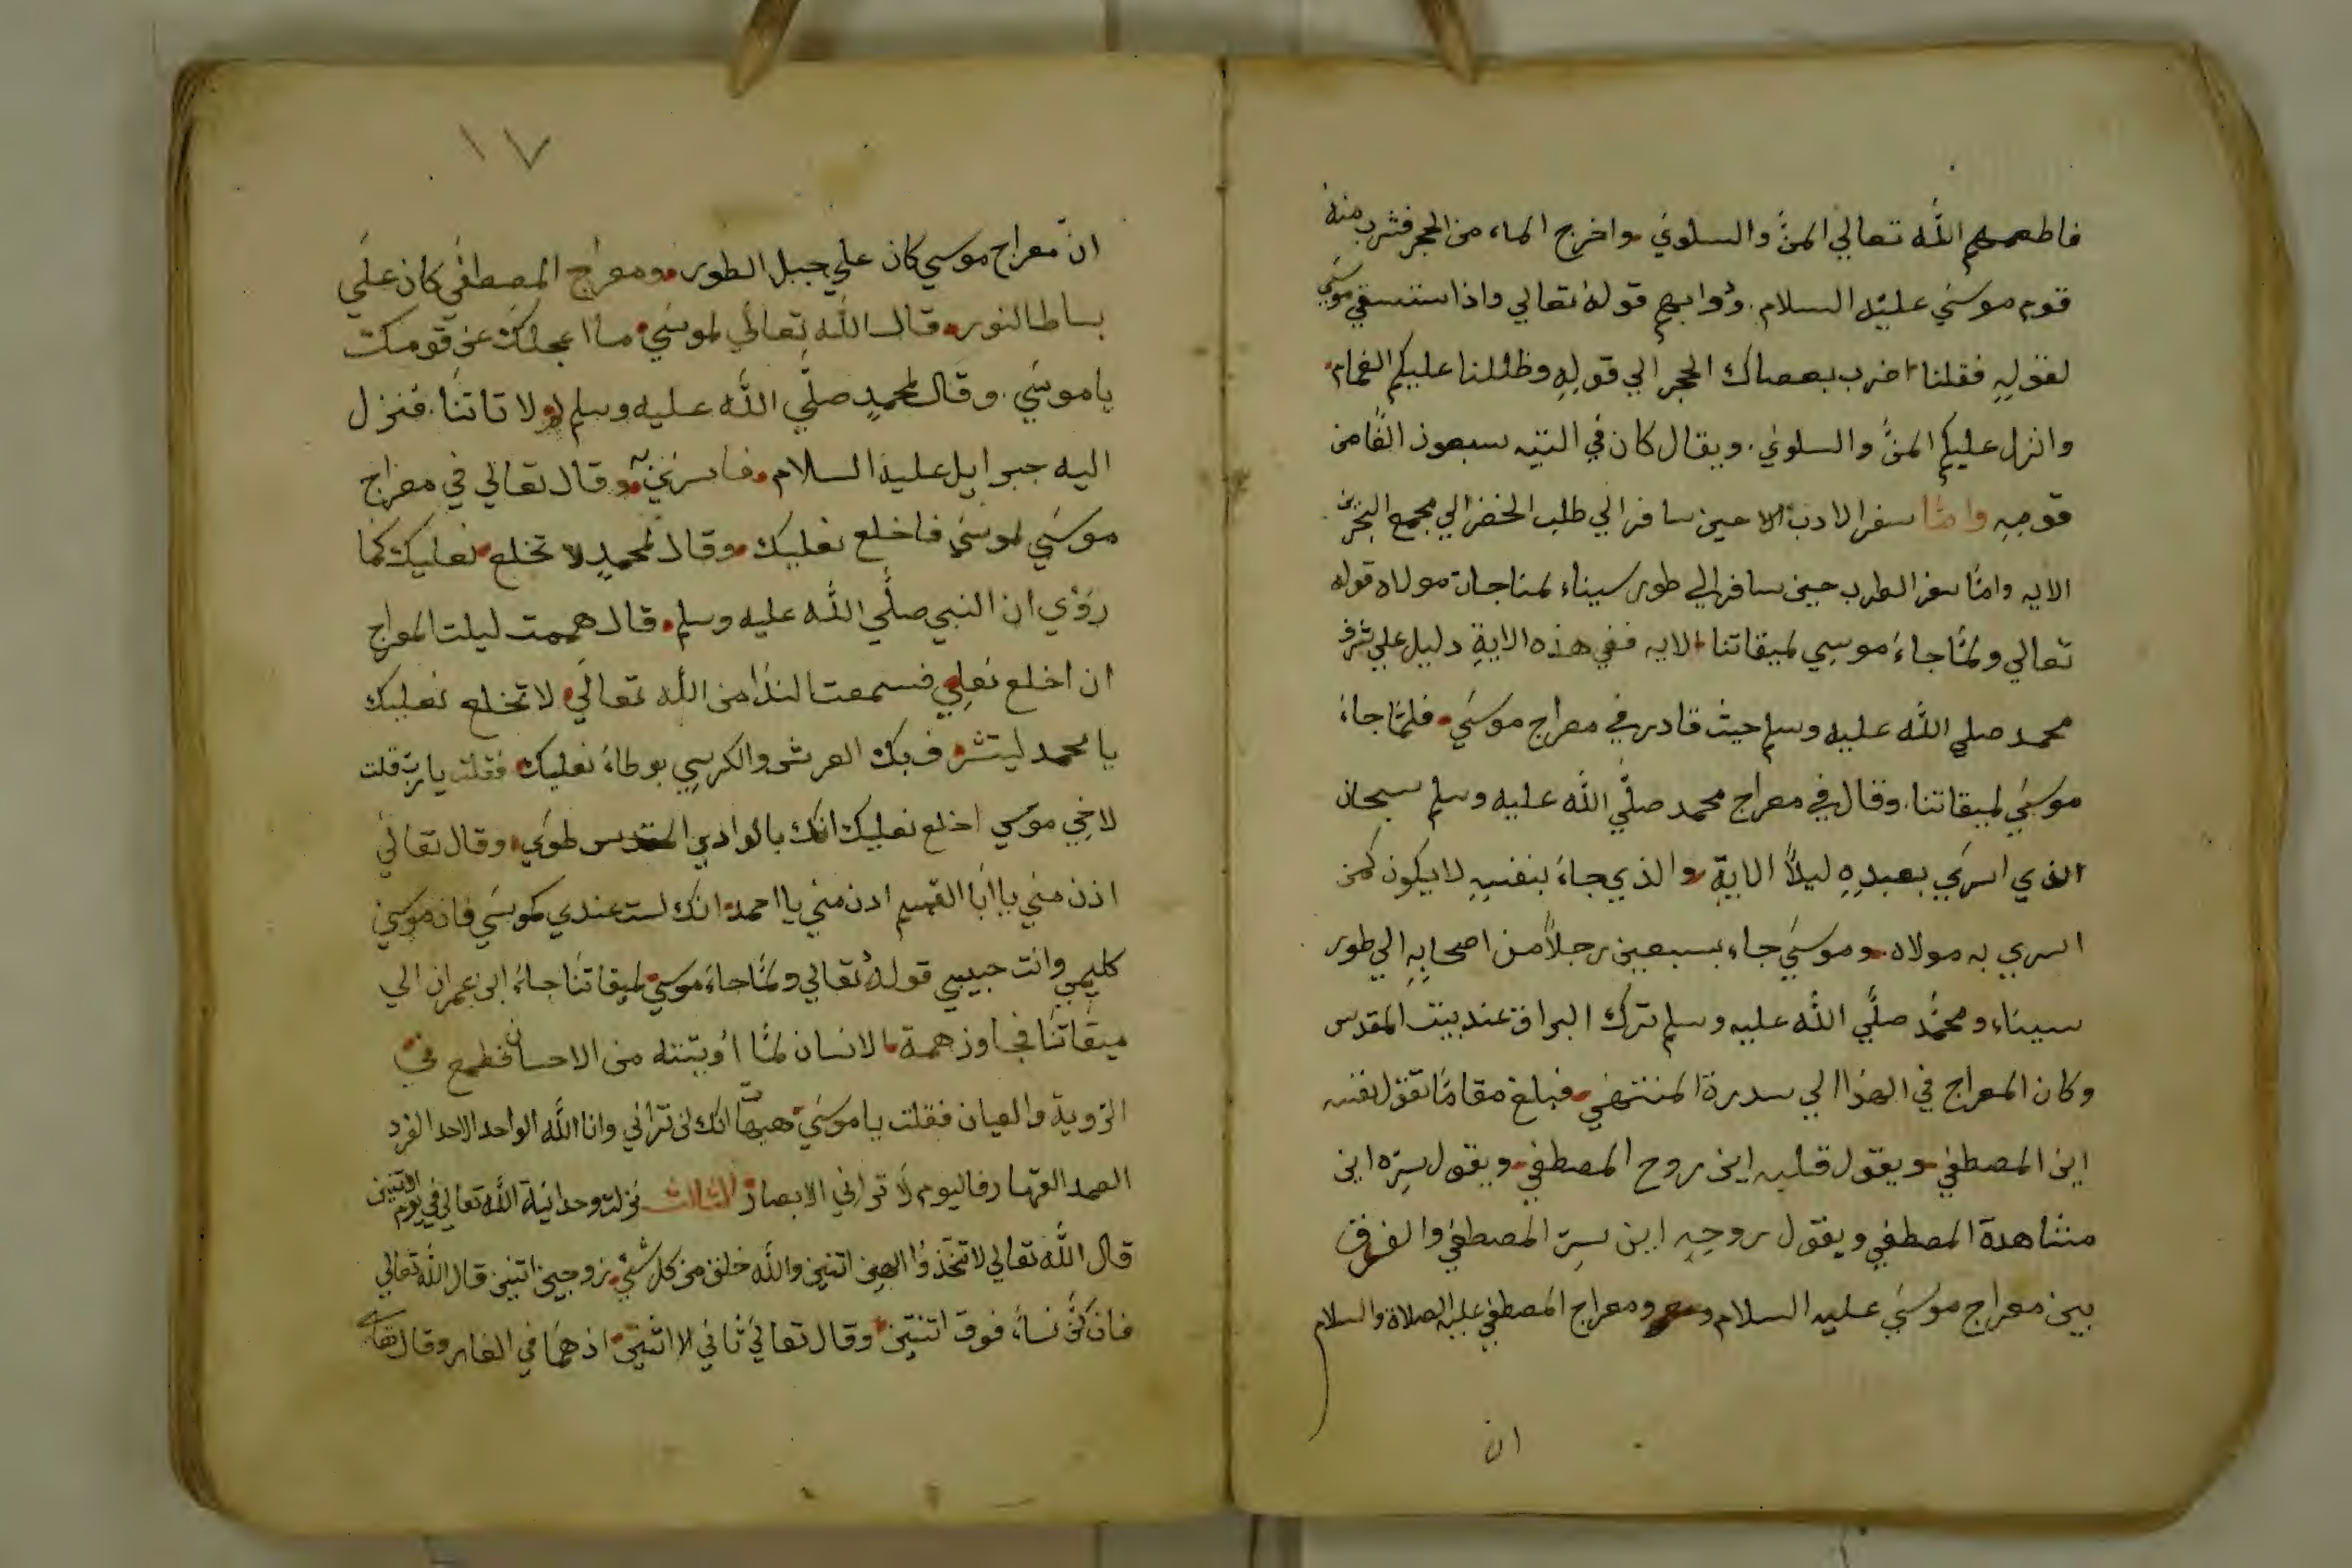 فاطعمهم الله تعالي المنَّ والسلوي واخرج الماء من الحجر فشرب منه
قوم موسي عليه السلام. ودوابهم قوله تعالي واذا استسقي موسي
لقولهِ فقلنا اضرب بعصاك الحجر الي قولهِ وظللنا عليكم الغمام
وانزل عليكم المنَّ والسلوي. ويقال كان في التيه سبعون الفًا من
قومهِ وامّا سفر الادب حين سافر الي طلب الخضر الي مجمع البحرين
الايه وامّا سفر الطرب حين سافر الي طور سيناء لمناجات مولاه قوله
تعالي ولمّا جاء موسي لميقاتنا الايه ففي هذه الايةِ دليل علي شرف
محمد صلي الله عليه وسلم حيث قادر في معراج موسي فلمّا جاء
موسي لميقاتنا. وقال في معراج محمد صلّي الله عليه وسلم سبحان
الذي اسري بعبدِهِ ليلاً الاية والذي جاءَ بنفسِهِ لا يكون كمن
اسري به مولاه وموسي جاء بسبعين رجلاً من اصحابِهِ الي طور
سيناء ومحمّد صلّي الله عليه وسلم ترك البراق عند بيت المقدس
وكان المعراج في الهوا الي سدرة المنتهي فبلغ مقامًا تقول نفسه
اين المصطفي ويقول قلبه اين روح المصطفي ويقول سِرّه اين
مشاهدة المصطفي ويقول روحِهِ اين سِرّ المصطفي والفرق
بين معراج موسي عليه السلام ومعراج المصطفي عليه الصلاة والسلام
ان
١٧
انّ معراج موسي كان علي جبل الطور ومعراج المصطفي كان علي
بساط النور قال الله تعالي لموسي ما اعجلك عن قومك
يا موسي. وقال لمحمدٍ صلّي الله عليه وسلم لولا تاتنا. فنزل
اليه جبرايل عليه السلام وقال تعالي في معراج
موسي لموسي فاخلع نعليك وقال لمحمدٍ لا تخلع نعليك كما
رؤي ان النبي صلّي الله عليه وسلم قال هممت ليلت المعراج
ان اخلع نعلِي فسمعت الندا من الله تعالي لا تخلع نعليك
يا محمد ليتشرف بك العرش والكرسِي بوطاء نعليك فقلت يا ربّ قلت
لاخي موسي اخلع نعليك انك بالوادي المقدس طوي وقال تعالي
ادن مني يا ابا القسم ادن مني يا احمد انك لست عندي كموسي فان موسي
كليمي وانت حبيبي قولهُ تعالي ولمّا جاء موسي لميقاتنا جاء ابن عمران الي
ميقاتنا فجاوز همة الانسان لمّا اوتيته من الاحسان فطمع في
الرويةِ والعيان فقلت يا موسي هيهات انّك لن تراني وانا الله الواحد الاحد الفرد
الصمد القهار فاليوم لا تراني الابصار الثالث نزلت وحدانية الله تعالي في يوم الاثنين
قال الله تعالي لا تتخذوا الهين اثنين والله خلق من كل شئ زوجين اثنين قال الله تعالي
فان كنّ نساءً فوق اثنتين وقال تعالي ثاني الاثنين اذ هما في الغار وقال تعالي